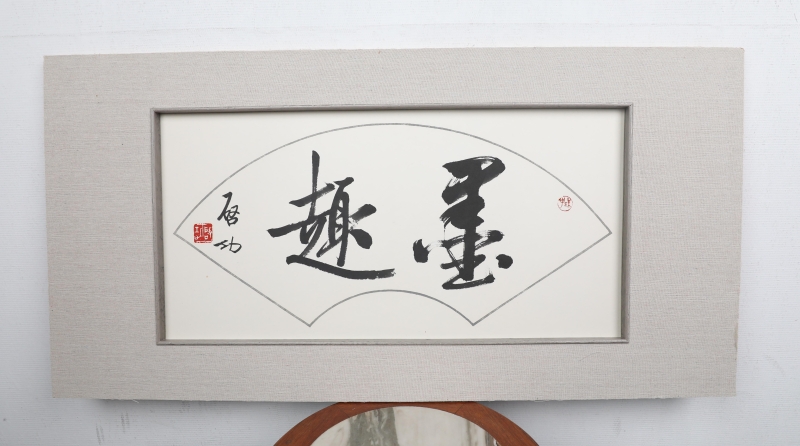 墨趣
启功